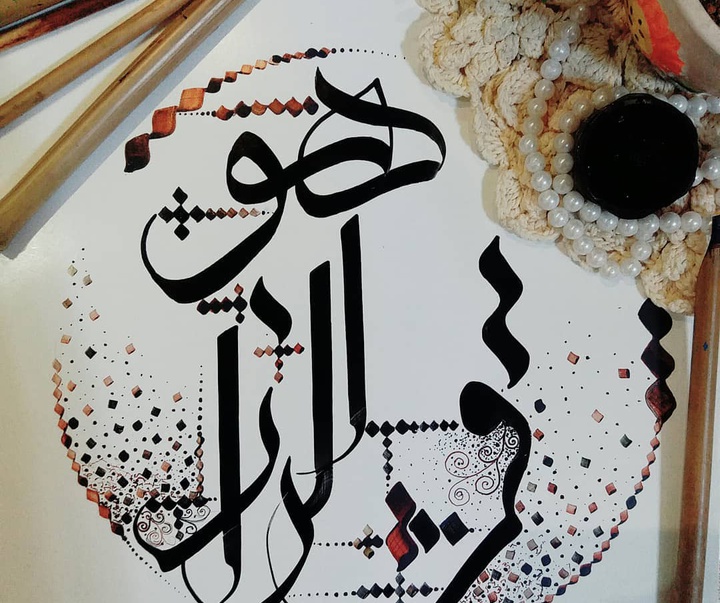 هو
الرزاق